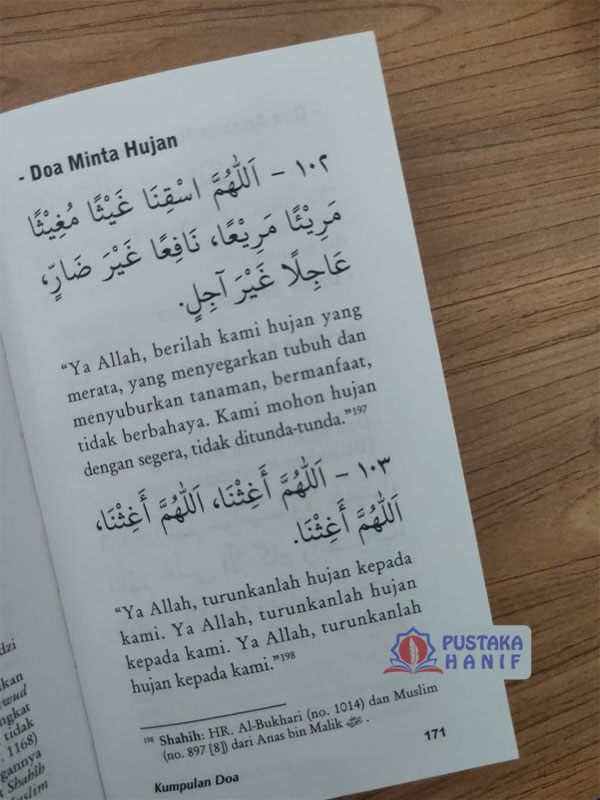 - Doa Minta Hujan
١٠٢ – اَللّٰهُمَّ اسْقِنَا غَيْثًا مُغِيْثًا
مَرِيْئًا مَرِيْعًا، نَافِعًا غَيْرَ ضَارٍّ،
عَاجِلًا غَيْرَ آجِلٍ.
“Ya Allah, berilah kami hujan yang
merata, yang menyegarkan tubuh dan
menyuburkan tanaman, bermanfaat,
tidak berbahaya. Kami mohon hujan
dengan segera, tidak ditunda-tunda.”197
١٠٣ – اَللّٰهُمَّ أَغِثْنَا، اَللّٰهُمَّ أَغِثْنَا،
اَللّٰهُمَّ أَغِثْنَا.
“Ya Allah, turunkanlah hujan kepada
kami. Ya Allah, turunkanlah hujan
kepada kami. Ya Allah, turunkanlah
hujan kepada kami.”198
198 Shahih: HR. Al-Bukhari (no. 1014) dan Muslim
(no. 897 [8]) dari Anas bin Malik .
171
Kumpulan Doa
PUSTAKA
HANIF
tidak
1168)
Shahih